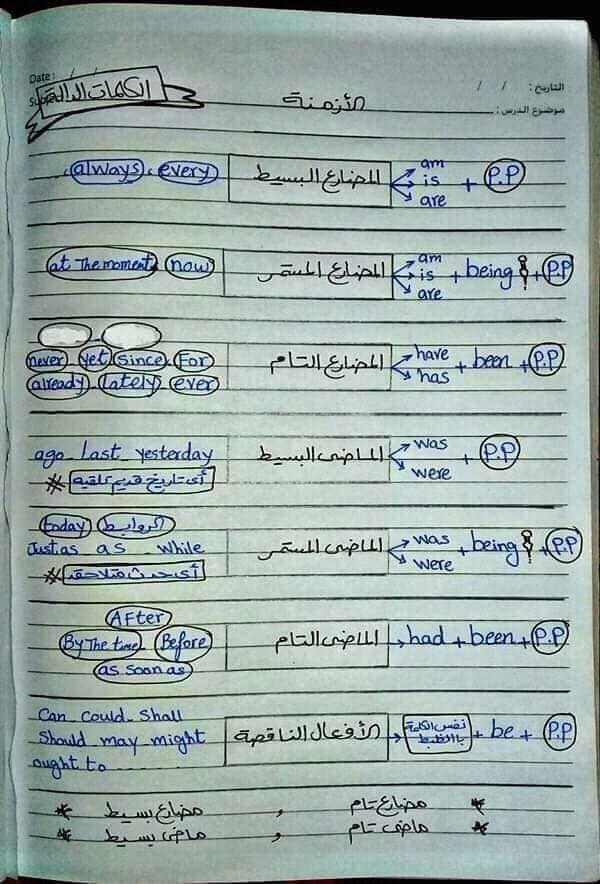 Date : / /
التاريخ : / /
الكلمات الدالة
الأزمنة
موضوع الدرس :
always, every
المضارع البسيط
am
is + P.P
are
at The moment, now
المضارع المستمر
am
is + being + P.P
are
never yet since, For
already lately ever
المضارع التام
have
has + been + P.P
ago last yesterday
* أى تاريخ قديم تلاقيه
الماضى البسيط
was
were + P.P
today الروابط
Just as as while
* أى حدث متلاحق
الماضى المستمر
was
were + being + P.P
AFter
By The time Before
as soon as
الماضى التام
had + been + P.P
Can could Shall
Should may might
ought to
الأفعال الناقصة
نفس الكلمة
بالظبط + be + P.P
* مضارع تام , مضارع بسيط *
* ماضى تام , ماضى بسيط *